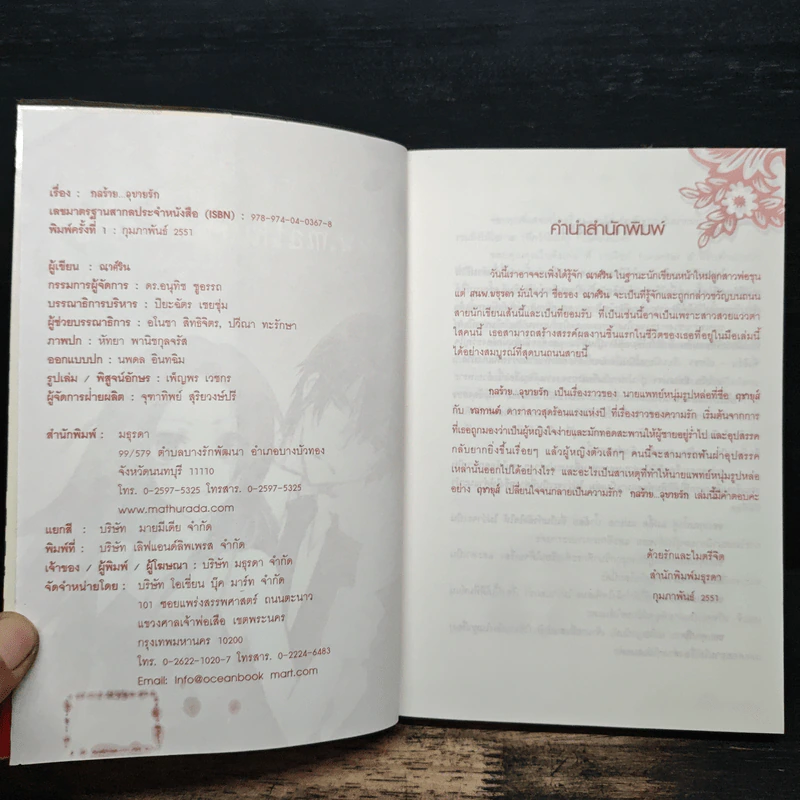 เรื่อง : กลร้าย...อุบายรัก
เลขมาตรฐานสากลประจำหนังสือ (ISBN) : 978-974-04-0367-8
พิมพ์ครั้งที่ 1 : กุมภาพันธ์ 2551
ผู้เขียน : ณาศิริน
กรรมการผู้จัดการ : ดร.อนุทิช ชูอรรถ
บรรณาธิการบริหาร : ปิยะฉัตร เชยชุ่ม
ผู้ช่วยบรรณาธิการ : อโนชา สิทธิจิตร, ปวีณา ทะรักษา
ภาพปก : หัทยา พานิชกุลจรัส
ออกแบบปก : นพดล อินทฉิม
รูปเล่ม / พิสูจน์อักษร : เพ็ญพร เวชกร
ผู้จัดการฝ่ายผลิต : จุฑาทิพย์ สุริยวงษ์ปรี
สำนักพิมพ์ : มธุรดา
99/579 ตำบลบางรักพัฒนา อำเภอบางบัวทอง
จังหวัดนนทบุรี 11110
โทร. 0-2597-5325 โทรสาร. 0-2597-5325
www.mathurada.com
แยกสี : บริษัท มายมีเดีย จำกัด
พิมพ์ที่ : บริษัท เลิฟแอนด์ลิพเพรส จำกัด
เจ้าของ / ผู้พิมพ์ / ผู้โฆษณา : บริษัท มธุรดา จำกัด
จัดจำหน่ายโดย : บริษัท โอเชี่ยน บุ๊ค มาร์ท จำกัด
101 ซอยแพร่งสรรพศาสตร์ ถนนตะนาว
แขวงศาลเจ้าพ่อเสือ เขตพระนคร
กรุงเทพมหานคร 10200
โทร. 0-2622-1020-7 โทรสาร. 0-2224-6483
Email: Info@oceanbook mart.com
คำนำสำนักพิมพ์
วันนี้เราอาจจะเพิ่งได้รู้จัก ณาศิริน ในฐานะนักเขียนหน้าใหม่ลูกสาวพ่อขุน
แต่ สนพ.มธุรดา มั่นใจว่า ชื่อของ ณาศิริน จะเป็นที่รู้จักและถูกกล่าวขวัญบนถนน
สายนักเขียนเส้นนี้และเป็นที่ยอมรับ ที่เป็นเช่นนี้อาจเป็นเพราะสาวสวยแววตา
ใสคนนี้ เธอสามารถสร้างสรรค์ผลงานชิ้นแรกในชีวิตของเธอที่อยู่ในมือเล่มนี้
ได้อย่างสมบูรณ์ที่สุดบนถนนสายนี้
กลร้าย...อุบายรัก เป็นเรื่องราวของ นายแพทย์หนุ่มรูปหล่อที่ชื่อ
กับ ชลกานต์ ดาราสาวสุดร้อนแรงแห่งปี ที่เรื่องราวของความรัก เริ่มต้นจากการ
ที่เธอถูกมองว่าเป็นผู้หญิงใจง่ายและมักทอดสะพานให้ผู้ชายอยู่ร่ำไป และอุปสรรค
กลับยากยิ่งขึ้นเรื่อยๆ แล้วผู้หญิงตัวเล็กๆ คนนี้จะสามารถฟันฝ่าอุปสรรค
เหล่านั้นออกไปได้อย่างไร? และอะไรเป็นสาเหตุที่ทำให้นายแพทย์หนุ่มรูปหล่อ
อย่าง เปลี่ยนใจจนกลายเป็นความรัก? กลร้าย...อุบายรัก เล่มนี้มีคำตอบค่ะ
ด้วยรักและไมตรีจิต
สำนักพิมพ์มธุรดา
กุมภาพันธ์ 2551